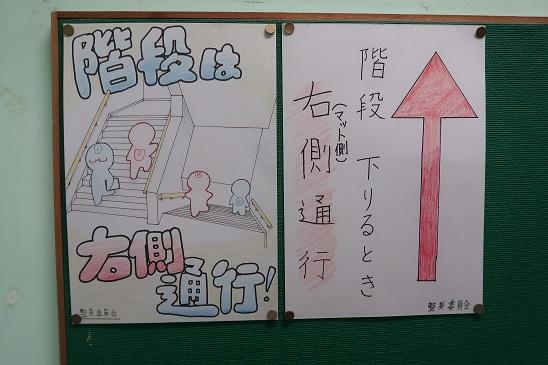 階段は
右側
通行!
整美委員会
階段 下りるとき
(マット側)
右側通行
整美委員会